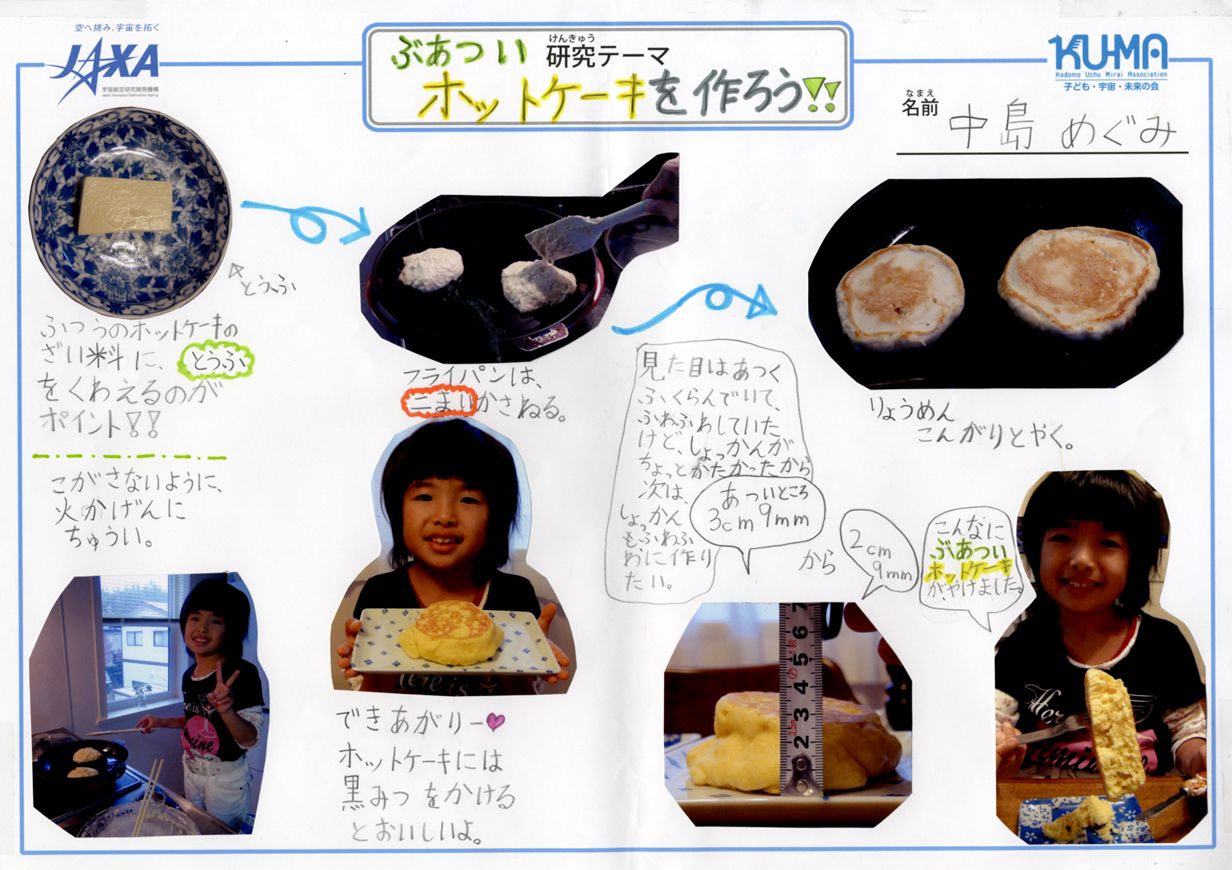 空へ挑み、宇宙を拓く
JAXA
宇宙航空研究開発機構
Japan Aerospace Exploration Agency
けんきゅう
ぶあつい 研究テーマ
ホットケーキを作ろう!!
KU-MA
Kodomo Uchu Mirai Association
子ども・宇宙・未来の会
なまえ
名前 中島 めぐみ
とうふ
ふつうのホットケーキの
ざい料に、とうふ
をくわえるのが
ポイント!!
こがさないように、
火かげんに
ちゅうい。
フライパンは、
二まいかさねる。
りょうめん
こんがりとやく。
見た目はあつく
ふくらんでいて、
ふわふわしていた
けど、しょっかんが
ちょっとかたかったから
次は、
しょっかん
もふわふ
わに作り
たい。
あついところ
3cm9mm
から
2cm
9mm
こんなに
ぶあつい
ホットケーキ
がやけました。
できあがりー
ホットケーキには
黒みつをかける
とおいしいよ。
7
6
5
4
3
2